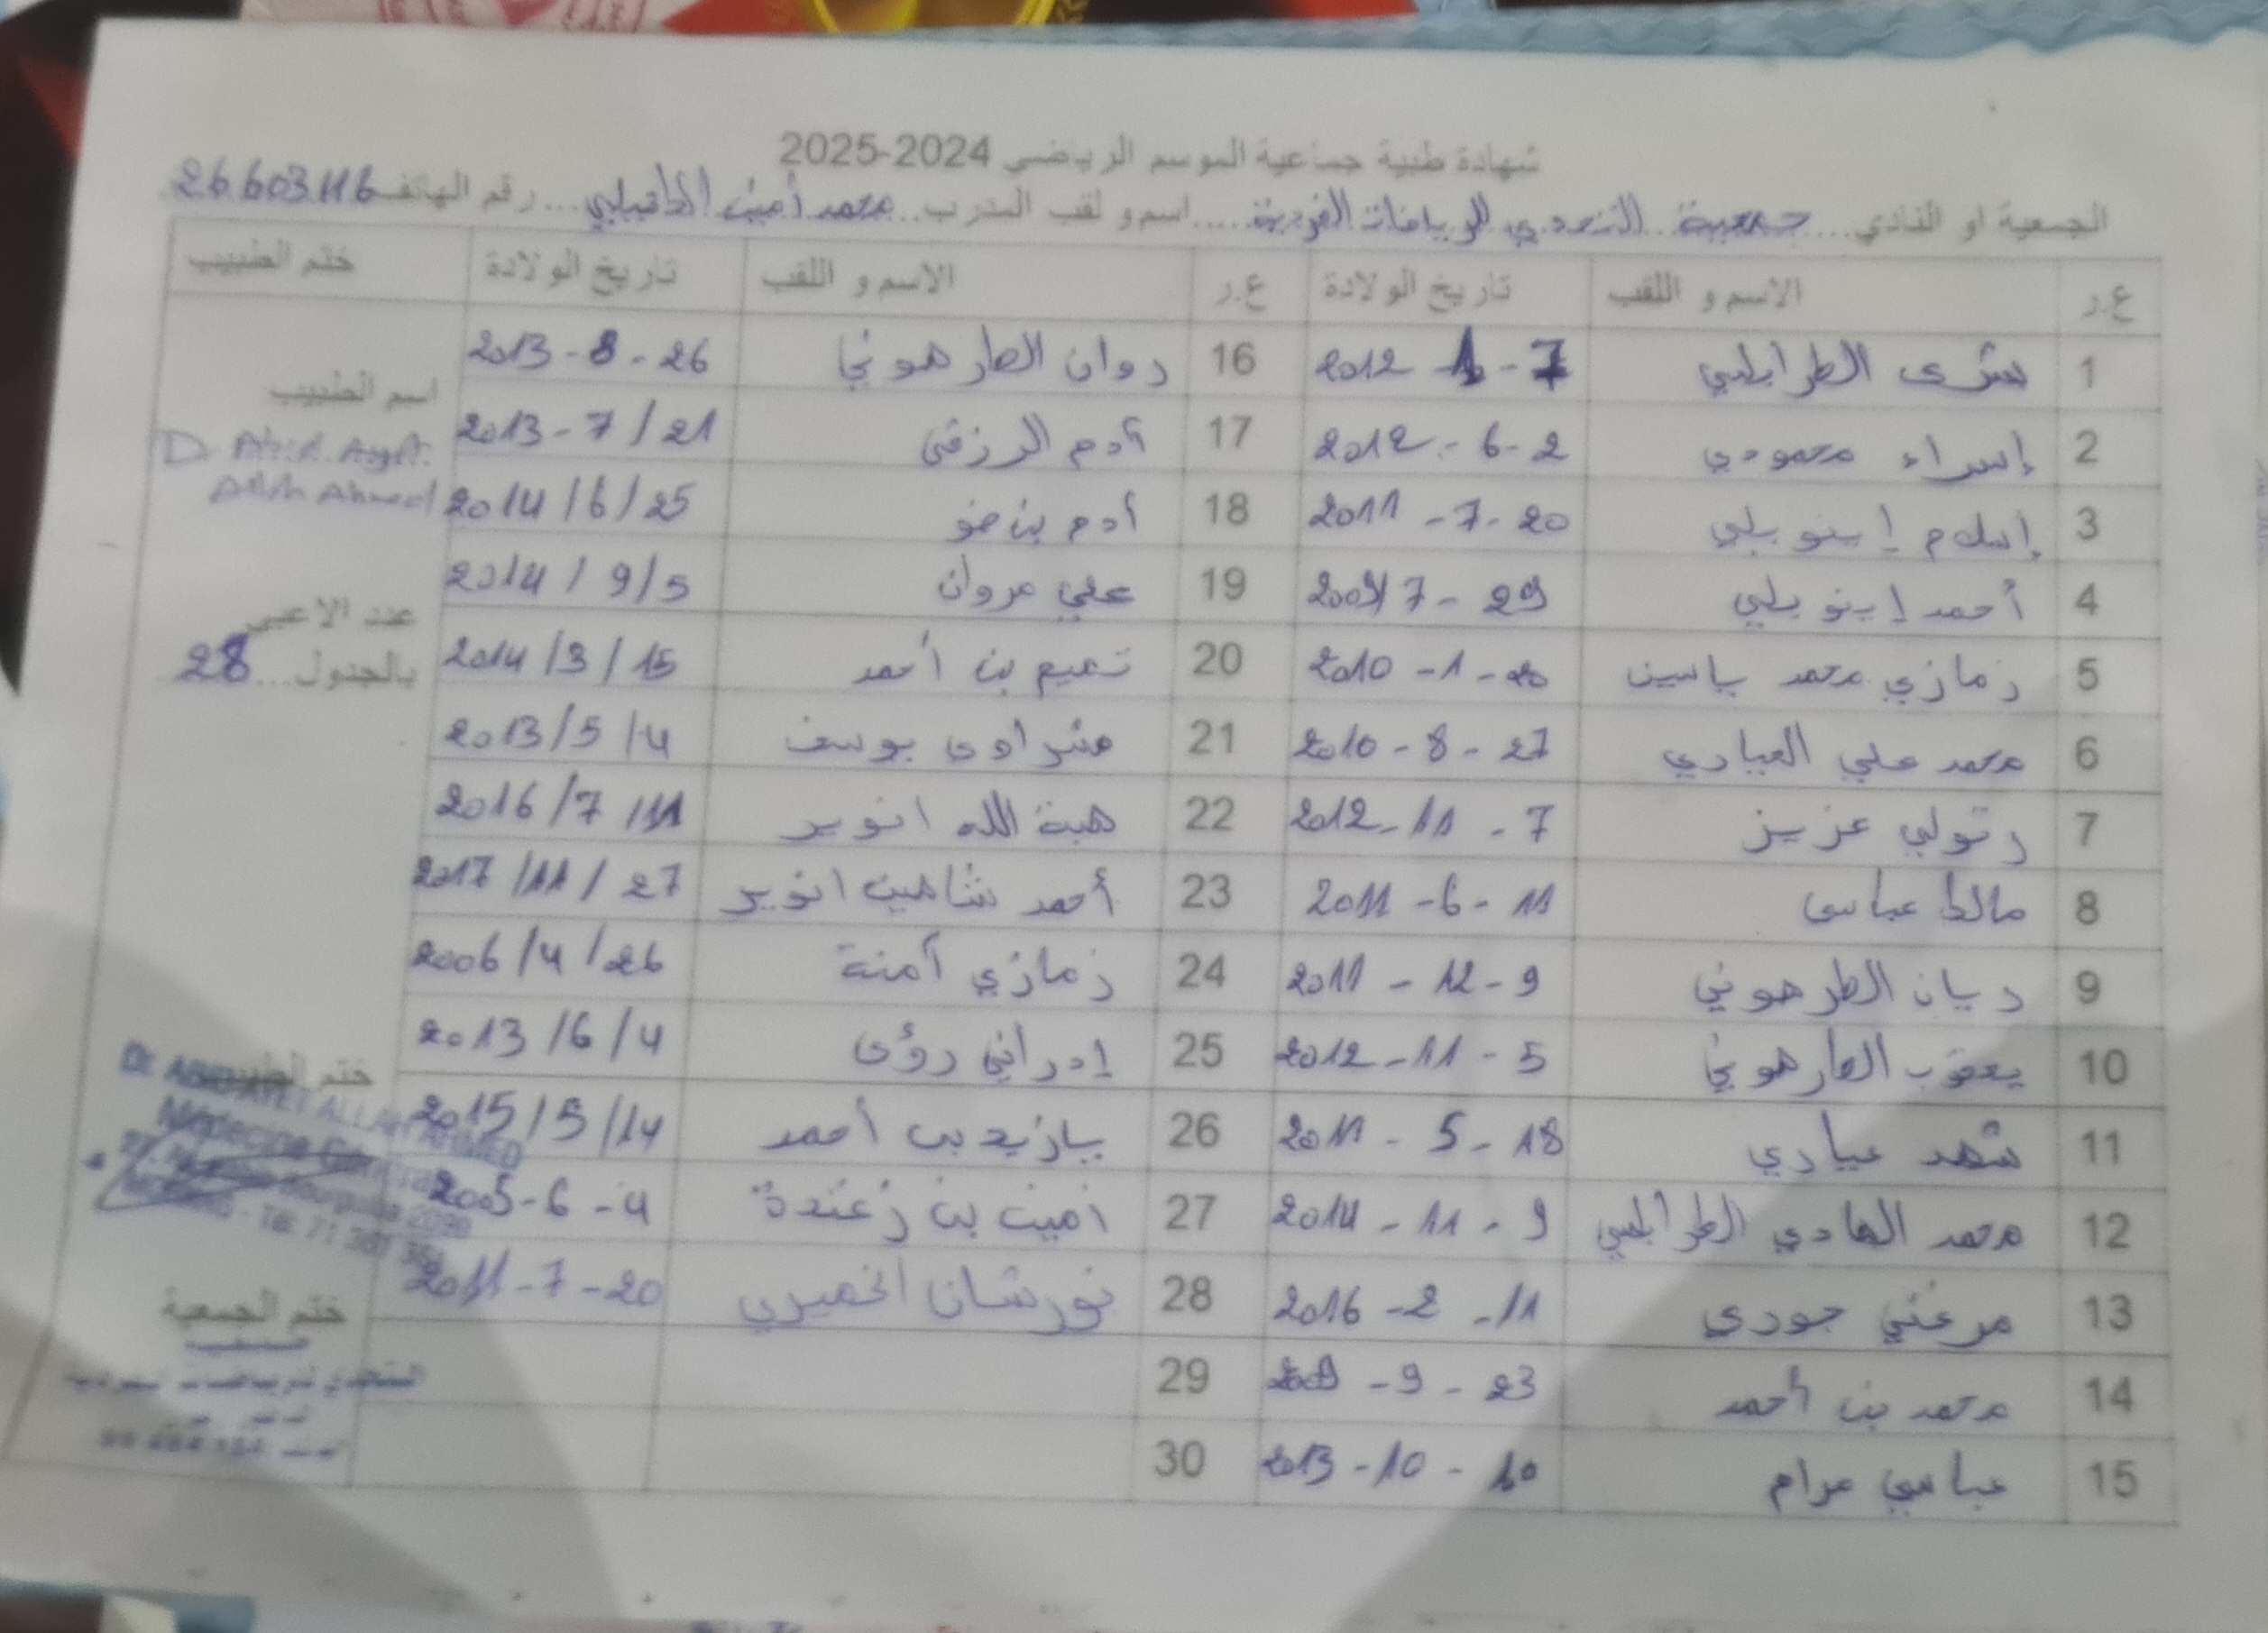 شهادة طبية جماعية الموسم الرياضي 2024-2025
الجمعية او النادي.... جمعية التحدي للرياضات الفردية .....اسم و لقب المدرب.. محمد أمين ...رقم الهاتف 26.603.116
ع.ر الاسم و اللقب تاريخ الولادة ع.ر الاسم و اللقب تاريخ الولادة ختم الطبيب
1 بشرى الطرابلسي 2012 - 1 - 7 16 روان الطرهوني 2013 - 8 - 26
اسم الطبيب
2 إسراء محمودي 2012 - 6 - 2 17 آدم الرزقي 2013 - 7 / 21
3 إسلام إينوبلي 2011 - 7 - 20 18 آدم بن ضو 2014 / 6 / 25
4 أحمد إينوبلي 7 - 29 19 علي مروان 2014 / 9 / 5
عدد الاعبي
بالجدول...28
5 زمازي محمد ياسين 2010 - 1 20 تميم بن أحمد 2014 / 3 / 15
6 محمد علي العيادي 2010 - 8 - 27 21 يوسف 2013 / 5 / 4
7 عزيز 2012 - 11 - 7 22 هبة الله انوير 2016 / 7 / 11
8 مالك عباسي 2011 - 6 - 11 23 أحمد شاهين انوير 2017 / 11 / 27
9 ريان الطرهوني 2011 - 12 - 9 24 زمازي آمنة 2006 / 4 / 26
10 يعقوب الطرهوني 2012 - 11 - 5 25 رؤى 2013 / 6 / 4
ختم الطبيب
11 شهد عيادي 2011 - 5 - 18 26 يازيد بن أحمد 2015 / 5 / 14
12 محمد الهادي الطرابلسي 2014 - 11 - 9 27 أمين بن زغندة 2005 - 6 - 4
13 مرغني جودي 2016 - 2 - 11 28 نورشان الخميري 2011 - 7 - 20
ختم الجمعية
14 محمد بن أحمد 9 - 23 29
15 عباسي مرام 2013 - 10 - 10 30